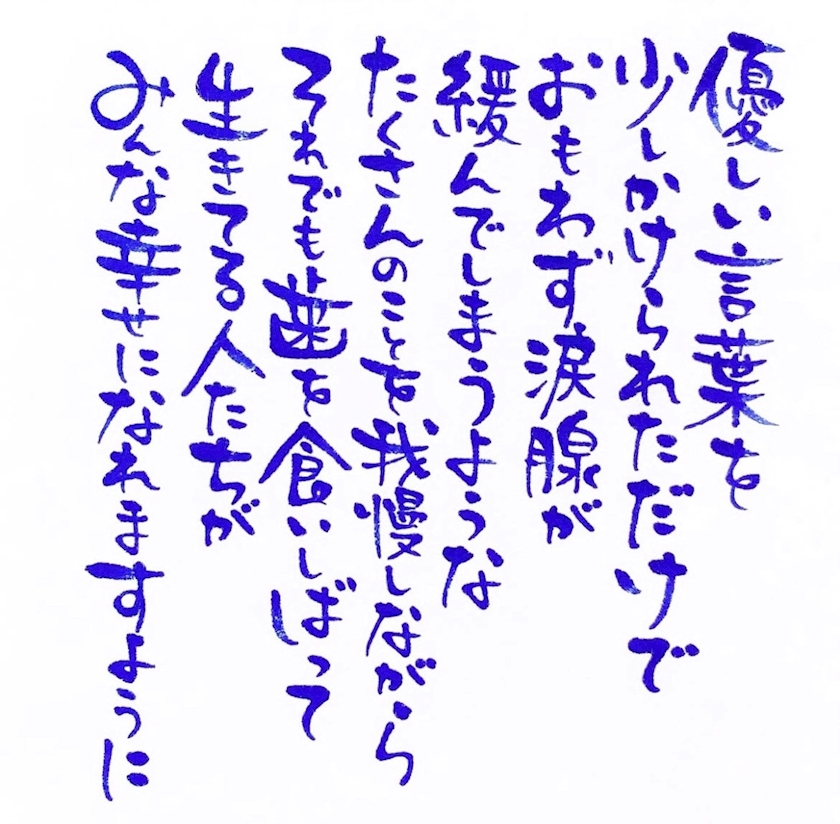 優しい言葉を
少しかけられただけで
おもわず涙腺が
緩んでしまうような
たくさんのことを我慢しながら
それでも歯を食いしばって
生きてる人たちが
みんな幸せになれますように